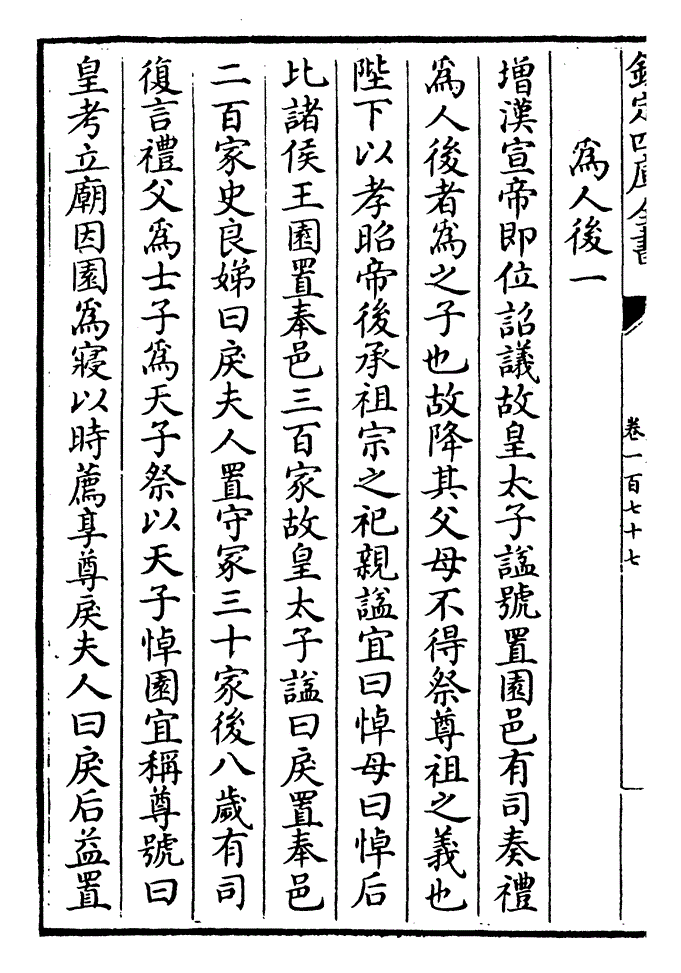 欽定四庫全書
卷一百七十七
為人後一
増漢宣帝即位詔議故皇太子諡號置園邑有司奏禮
為人後者為之子也故降其父母不得祭尊祖之義也
陛下以孝昭帝後承祖宗之祀親諡宜曰悼母曰悼后
比諸侯王園置奉邑三百家故皇太子諡曰戾置奉邑
二百家史良娣曰戾夫人置守冢三十家後八歲有司
復言禮父為士子為天子祭以天子悼園宜稱尊號曰
皇考立廟因園為寢以時薦享尊戾夫人曰戾后益置